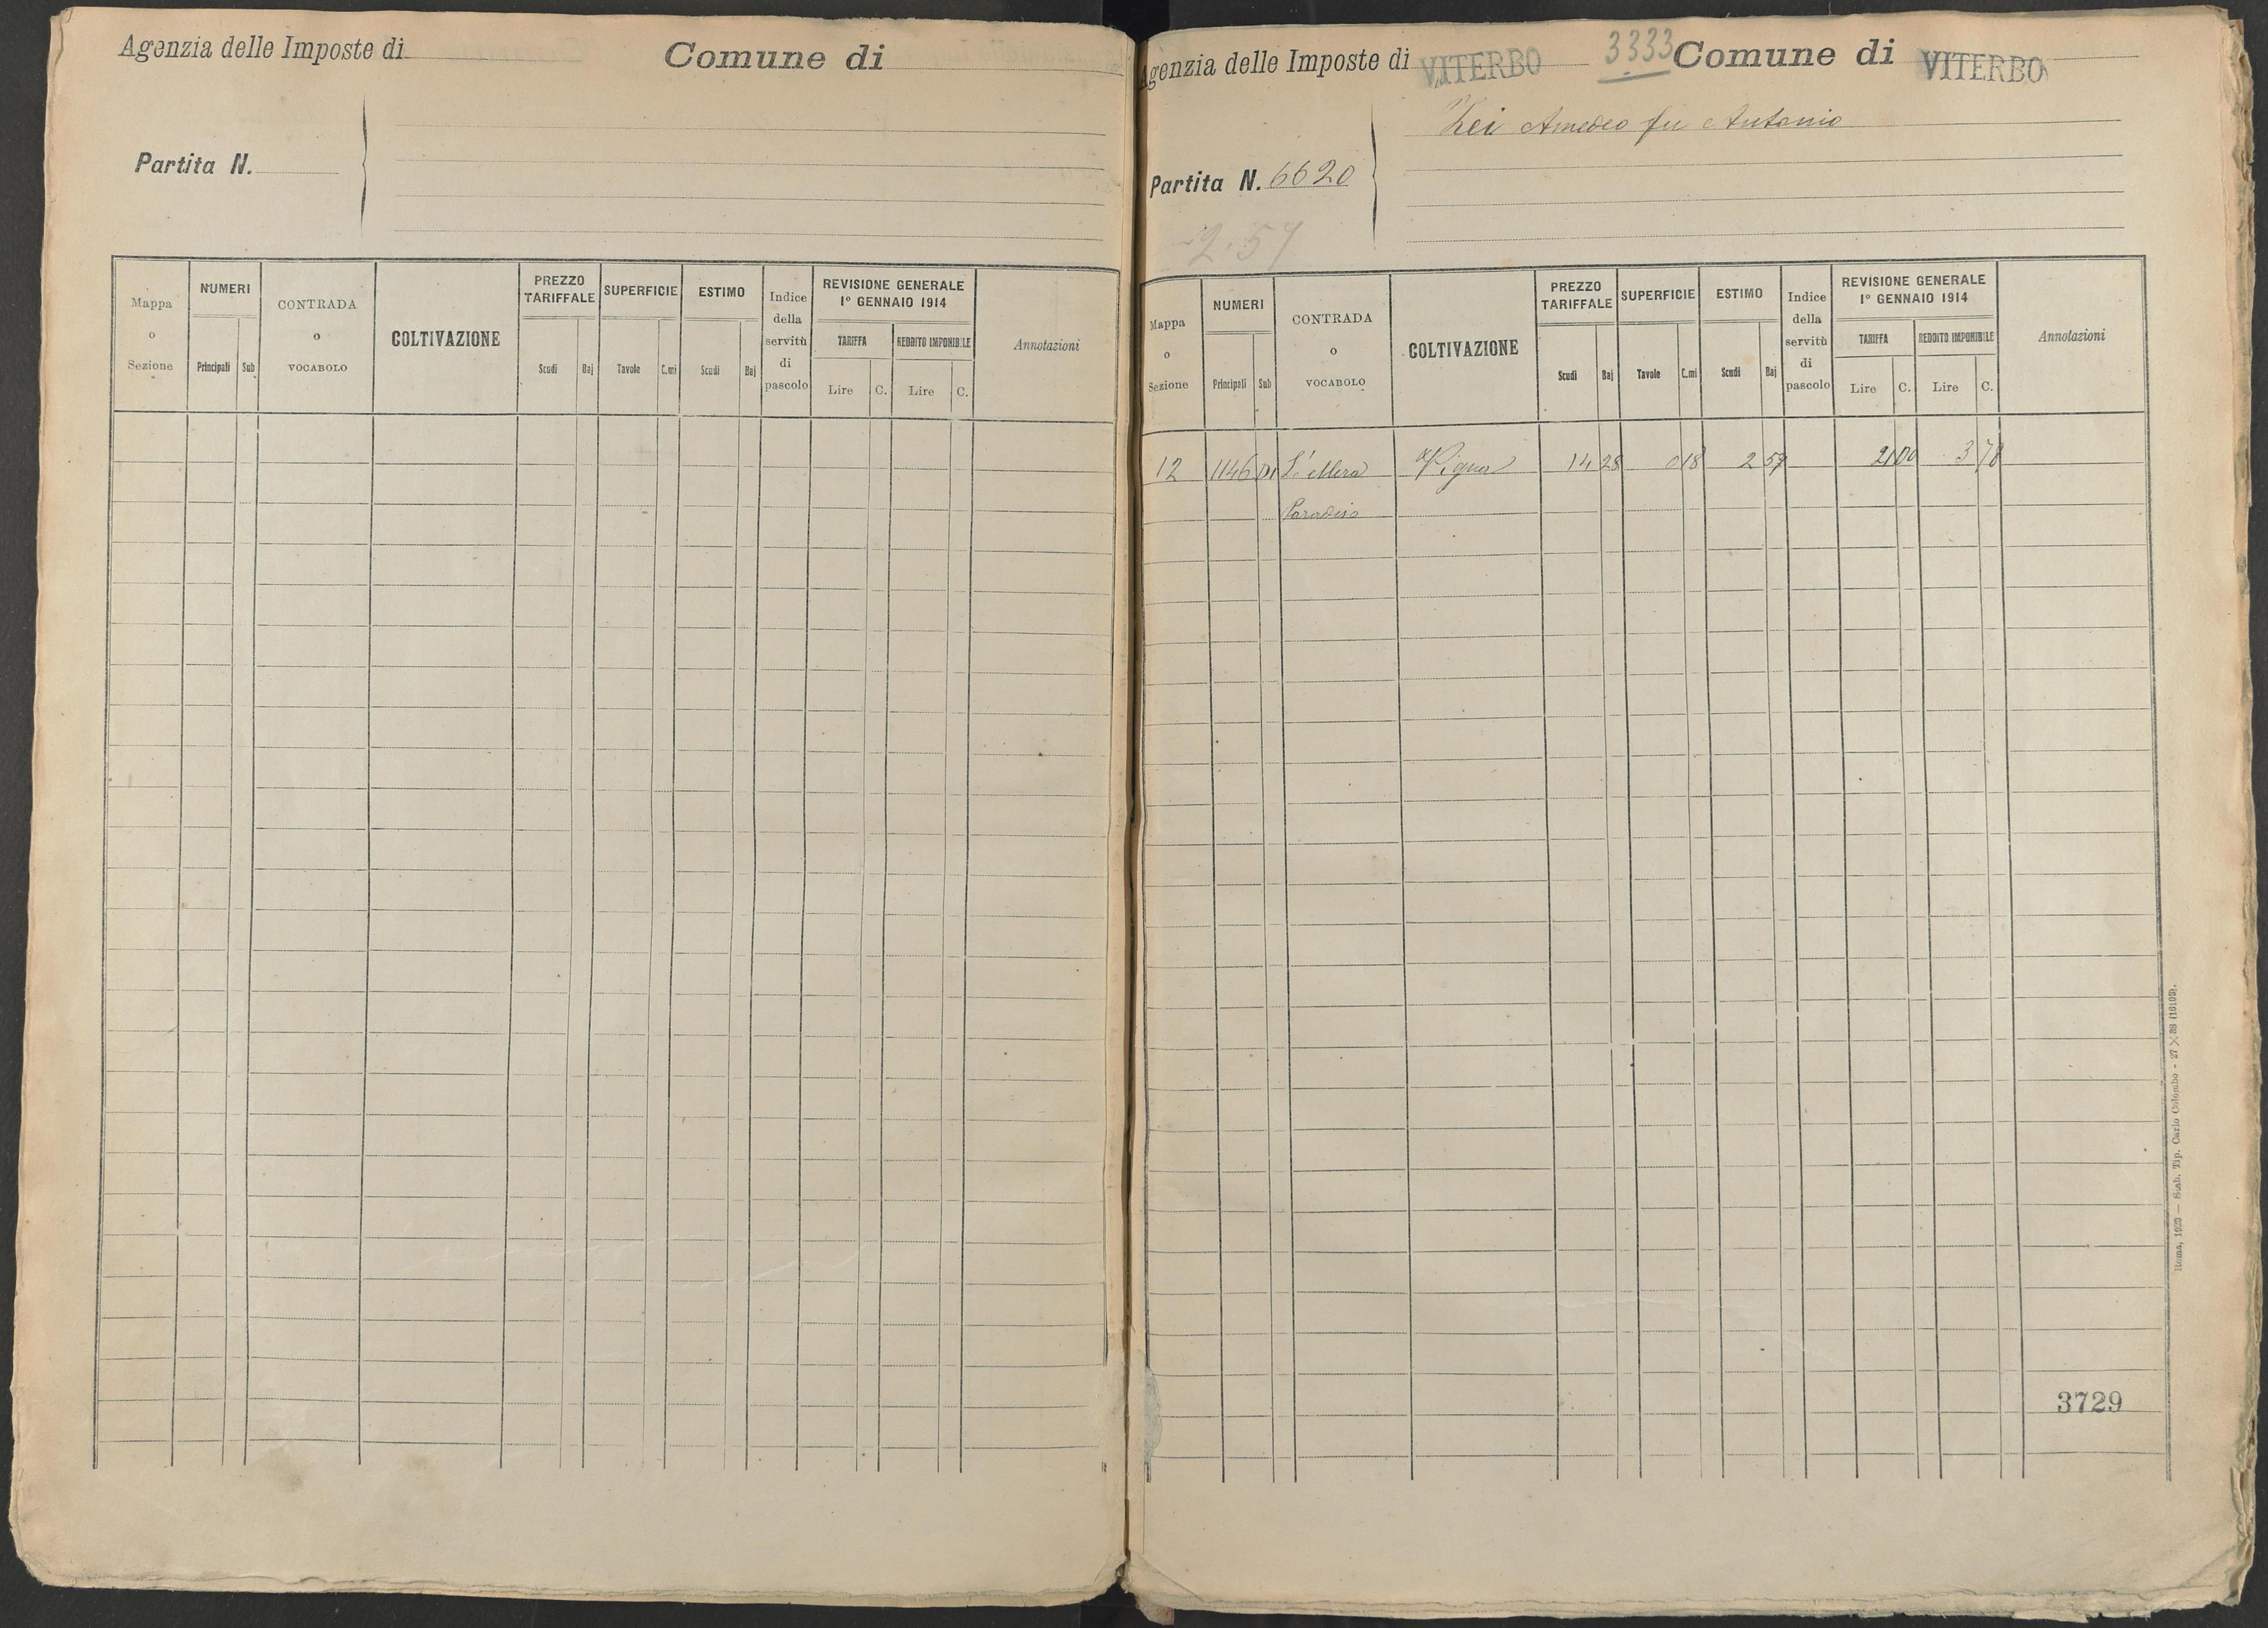 Agenzia delle Imposte di
Comune di
Partita N.
Mappa o Sezione
NUMERI
Principali Sub
CONTRADA o VOCABOLO
COLTIVAZIONE
PREZZO TARIFFALE
Scudi Baj
SUPERFICIE
Tavole C.mi
ESTIMO
Scudi Baj
Indice della servitù di pascolo
REVISIONE GENERALE
1º GENNAIO 1914
TARIFFA
Lire C.
REDDITO IMPONIBILE
Lire C.
Annotazioni
Agenzia delle Imposte di VITERBO 3333 Comune di VITERBO
Zei Amedeo fu Antonio
Partita N. 6620
2.57
Mappa o Sezione
NUMERI
Principali Sub
CONTRADA o VOCABOLO
COLTIVAZIONE
PREZZO TARIFFALE
Scudi Baj
SUPERFICIE
Tavole C.mi
ESTIMO
Scudi Baj
Indice della servitù di pascolo
REVISIONE GENERALE
1º GENNAIO 1914
TARIFFA
Lire C.
REDDITO IMPONIBILE
Lire C.
Annotazioni
12 1146 Vigna 14 28 0 18 2 57 21 00 3 78
Paradiso
3729
Roma, 1923 — Stab. Tip. Carlo Colombo - 27 × 38 (16105).